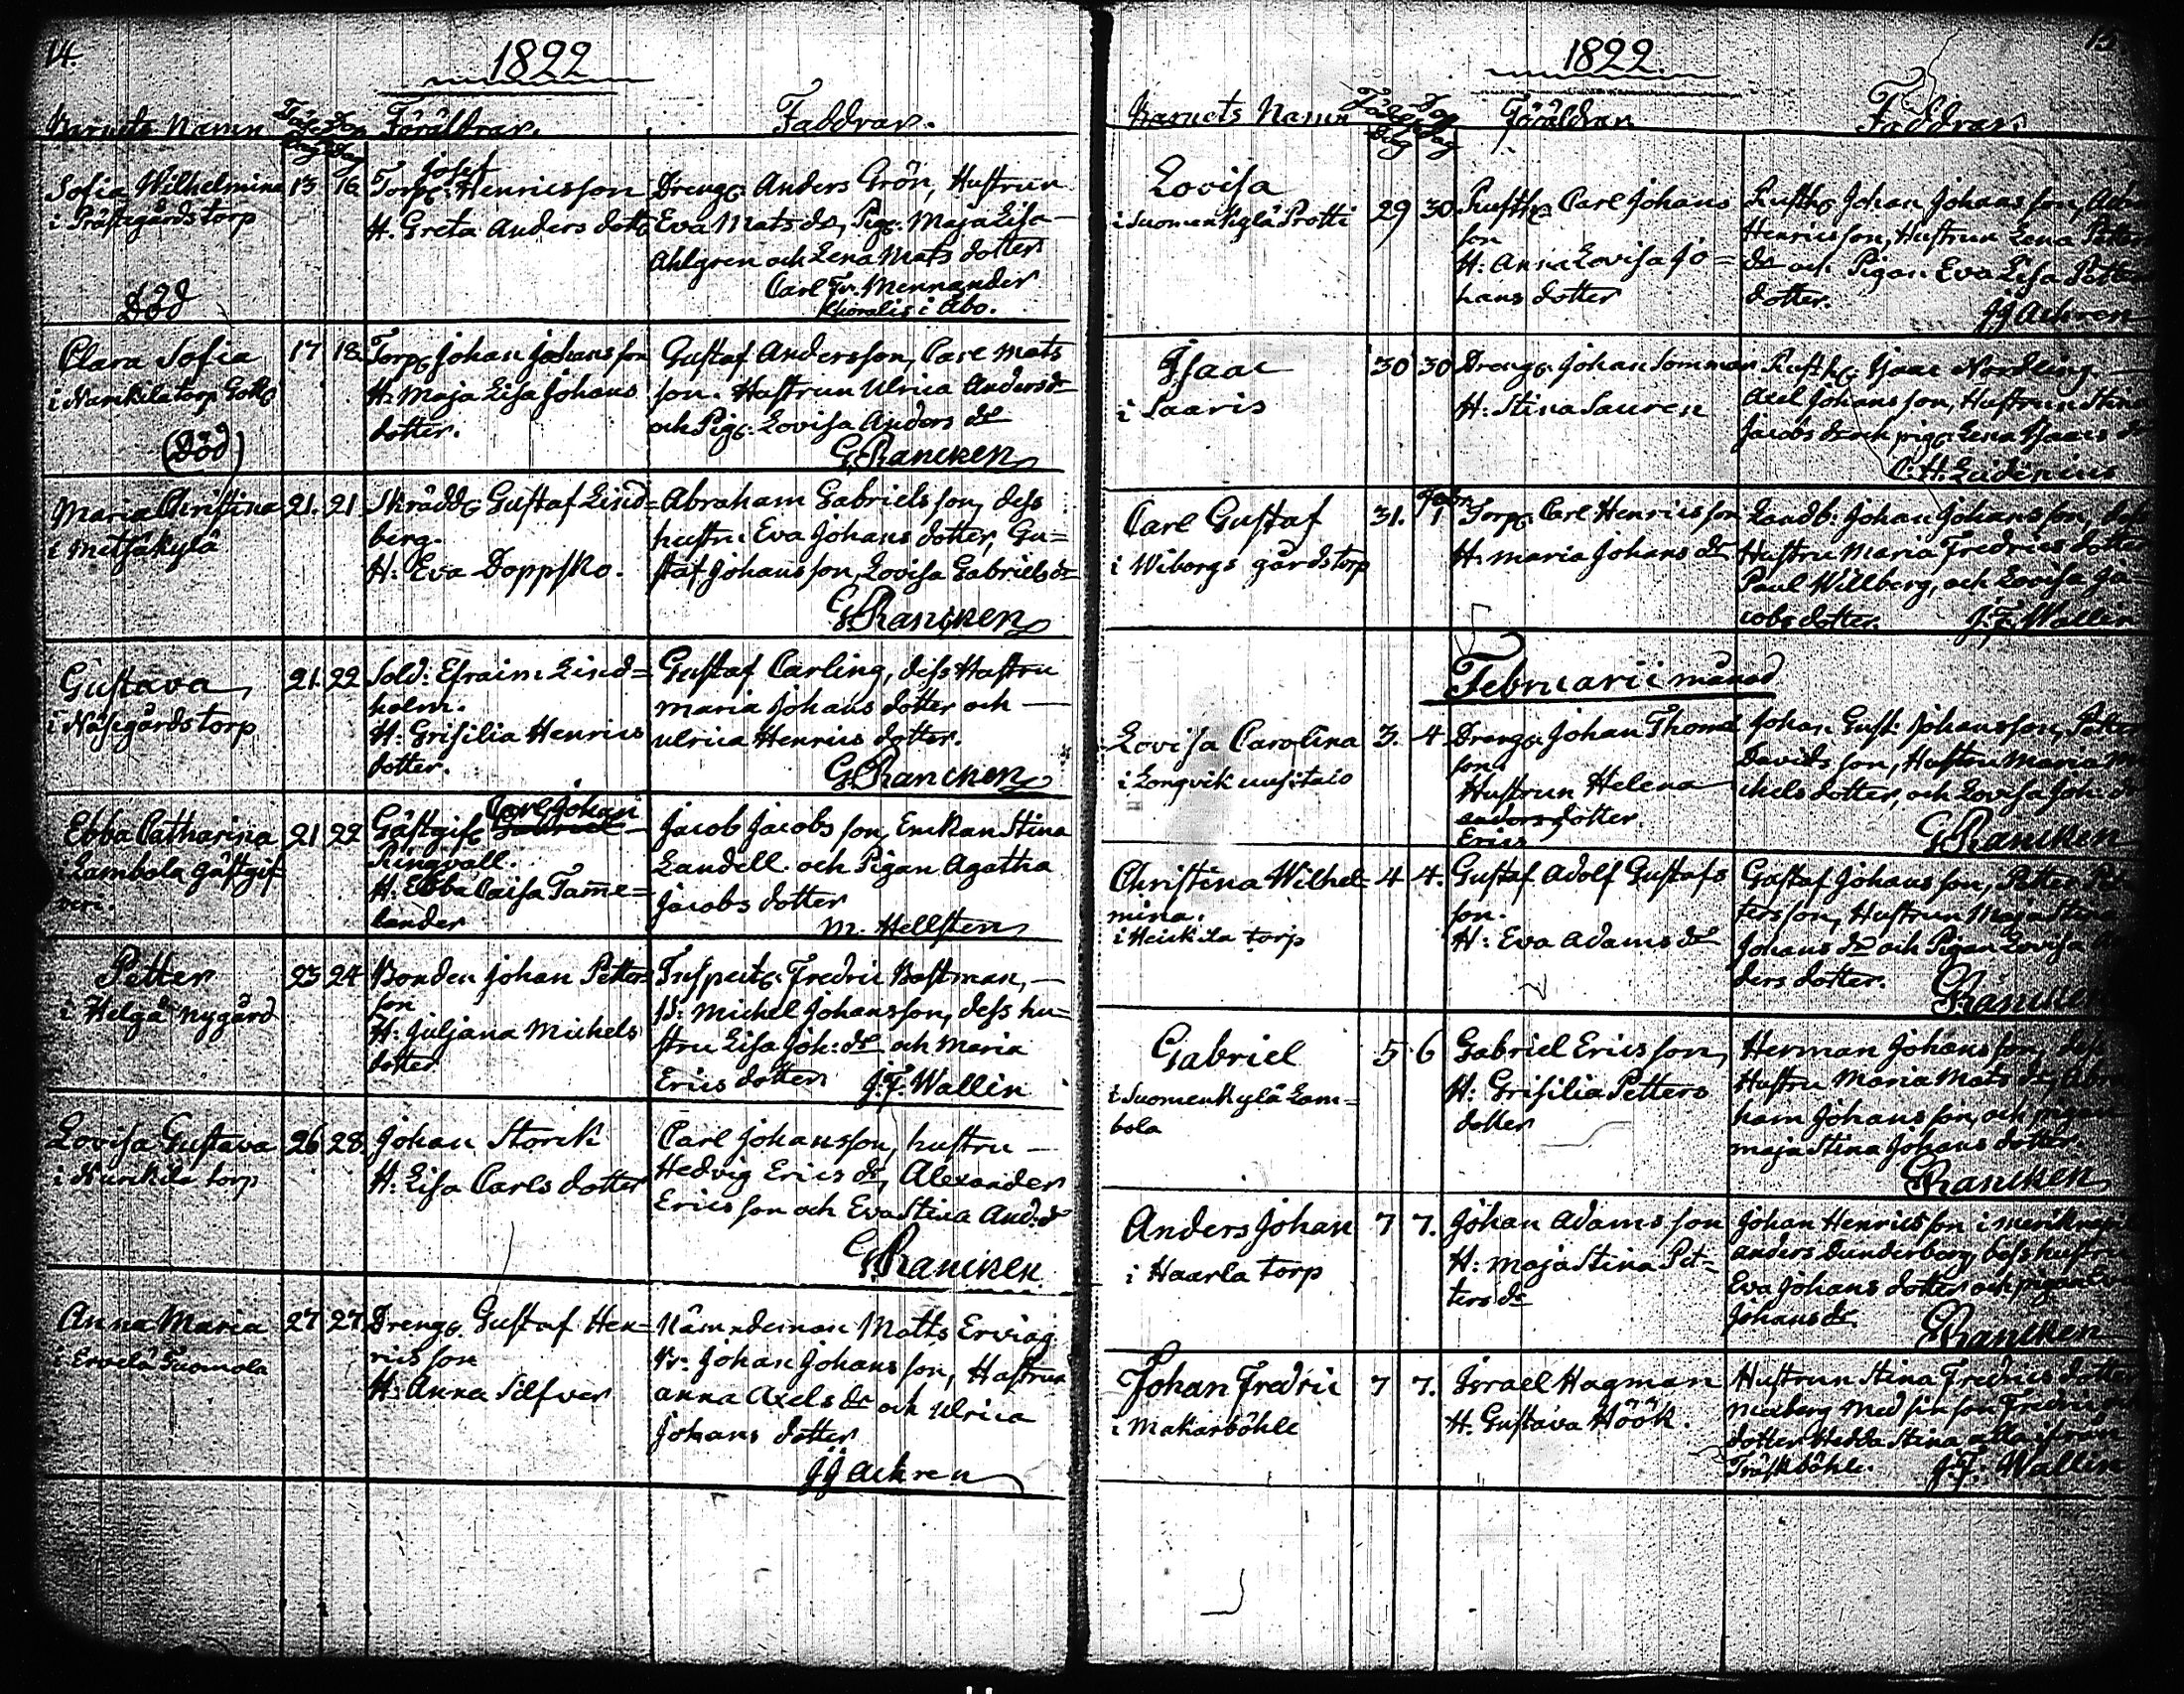 14.
1822
Barnets Namn Föd. Dag Döp Dag Föräldrar. Faddrar.
Sofia Wilhelmina 13 16
i Prästegårds torp
Död
Josef
Torp: Henricsson
H. Greta Anders dott:
Dreng: Anders Grön, Hustrun
Eva Mats dr, Pig: Maja Lisa
Ahlgren och Lena Mats dotter
Carl Fr. Mennander
i Åbo.
Clara Sofia 17 18
(Död)
Torp: Johan Johansson
H: Maja Lisa Johans
dotter.
Gustaf Andersson, Carl Mats
son. Hustrun Ulrica Anders dr
och Pig: Lovisa Anders dr
G Rancken
Maria Christina 21. 21
i Metsäkylä
Skrädd: Gustaf Lind=
berg.
H: Eva Doppsko.
Abraham Gabrielsson, dess
hustru Eva Johans dotter, Gu=
staf Johansson, Lovisa Gabriels dr
G Rancken
Gustava 21. 22
i Näsegårds torp
Sold: Efraim Lind=
holm.
H: Grisilia Henrics
dotter.
Gustaf Carling, dess Hustru
Maria Johans dotter och
Ulrica Henrics dotter.
G Rancken
Ebba Catharina 21 22
i Lambola Gästgif=
veri.
Carl Johan
Gästgif: Gabriel
Ringvall.
H: Ebba Caisa Tamme=
lander
Jacob Jacobsson, Enkan Stina
Landell och Pigan Agatha
Jacobs dotter
M. Hellsten
Petter 23 24
i Helgå Nygård
Bonden Johan Petters
son
H: Juljana Michels
dotter
Inspect: Fredric Bastman,
B: Michel Johansson, dess hu=
stru Lisa Joh: dr och Maria
Erics dotter J.F. Wallin
Lovisa Gustava 26 28
torp
Johan Storck
H: Lisa Carls dotter
Carl Johansson, hustru
Hedvig Erics dr, Alexander
Ericsson och Eva Stina And: dr
G. Rancken.
Anna Maria 27 27
i Ervelä Tuomola
Dreng: Gustaf Hen=
ricsson
H: Anna Silfver
Nämndeman Matts
Johan Johansson, Hustrun
Anna Axels dr och Ulrica
Johans dotter
JJ Achren
15.
1822.
Barnets Namn Föd. Dag Döp Dag Föräldrar Faddrar.
Lovisa 29 30
i Suomenkylä Protti
Rusth: Carl Johans
son
H: Anna Lovisa Jo=
hans dotter
Rusth: Johan Johansson,
Henricsson, Hustrun Lena Petters
dr och Pigan Eva Lisa Petters
dotter.
JJ Achren
Isaac 30 30
i Saaris
Dreng: Johan Somman
H: Stina Sauren
Rusth: Isaac Nordling.
Axel Johansson, Hustrun Stina
Jacobs dr och pig: Lena Isaacs dr
Carl Gustaf 31. Febr. 1
i Wiborgs gårds torp
Torp: Carl Henricsson
H: Maria Johans dr
Landb: Johan Johansson, dess
Hustru Maria Fredrics dotter
Paul Willberg, och Lovisa Ja=
cobs dotter. J.F. Wallin
Februarii månad
Lovisa Carolina 3. 4
i Longvik uusitalo
Dreng: Johan Thomas
son.
Hustrun Helena
Anders dotter.
Erics
Johan Gust: Johansson, Petter
Davidsson, Hustru Maria Mi
chels dotter, och Lovisa Joh: dr
G Rancken
Christina Wilhel= 4 4.
mina.
i Heickila torp
Gustaf Adolf Gustafs
son.
H: Eva Adams dr
Gustaf Johansson, Petter Pet
tersson, Hustrun Maja Stina
Johans dr och Pigan Lovisa An
ders dotter.
G Rancken
Gabriel 5 6
i Suomenkylä Lam=
bola
Gabriel Ericsson,
H: Grisilia Petters
dotter
Herman Johansson, dess
Hustru Maria Mats dr, Abra
ham Johansson, och pigan
Maja Stina Johans dotter
G Rancken
Anders Johan 7 7.
i Haarla torp
Johan Adamsson
H: Maja Stina Pet=
ters dr
Johan Henricsson i
Anders Dunderberg dess hustru
Eva Johans dotter och pigan
Johans dr.
G Rancken
Johan Fredric 7 7.
i Makarböhle
Israel Hagman
H. Gustava Höök.
Hustrun Stina Fredrics dotter
med sin son Fredric
dotter Hedda Stina alla ifrån
Träskböhle. J.F. Wallin